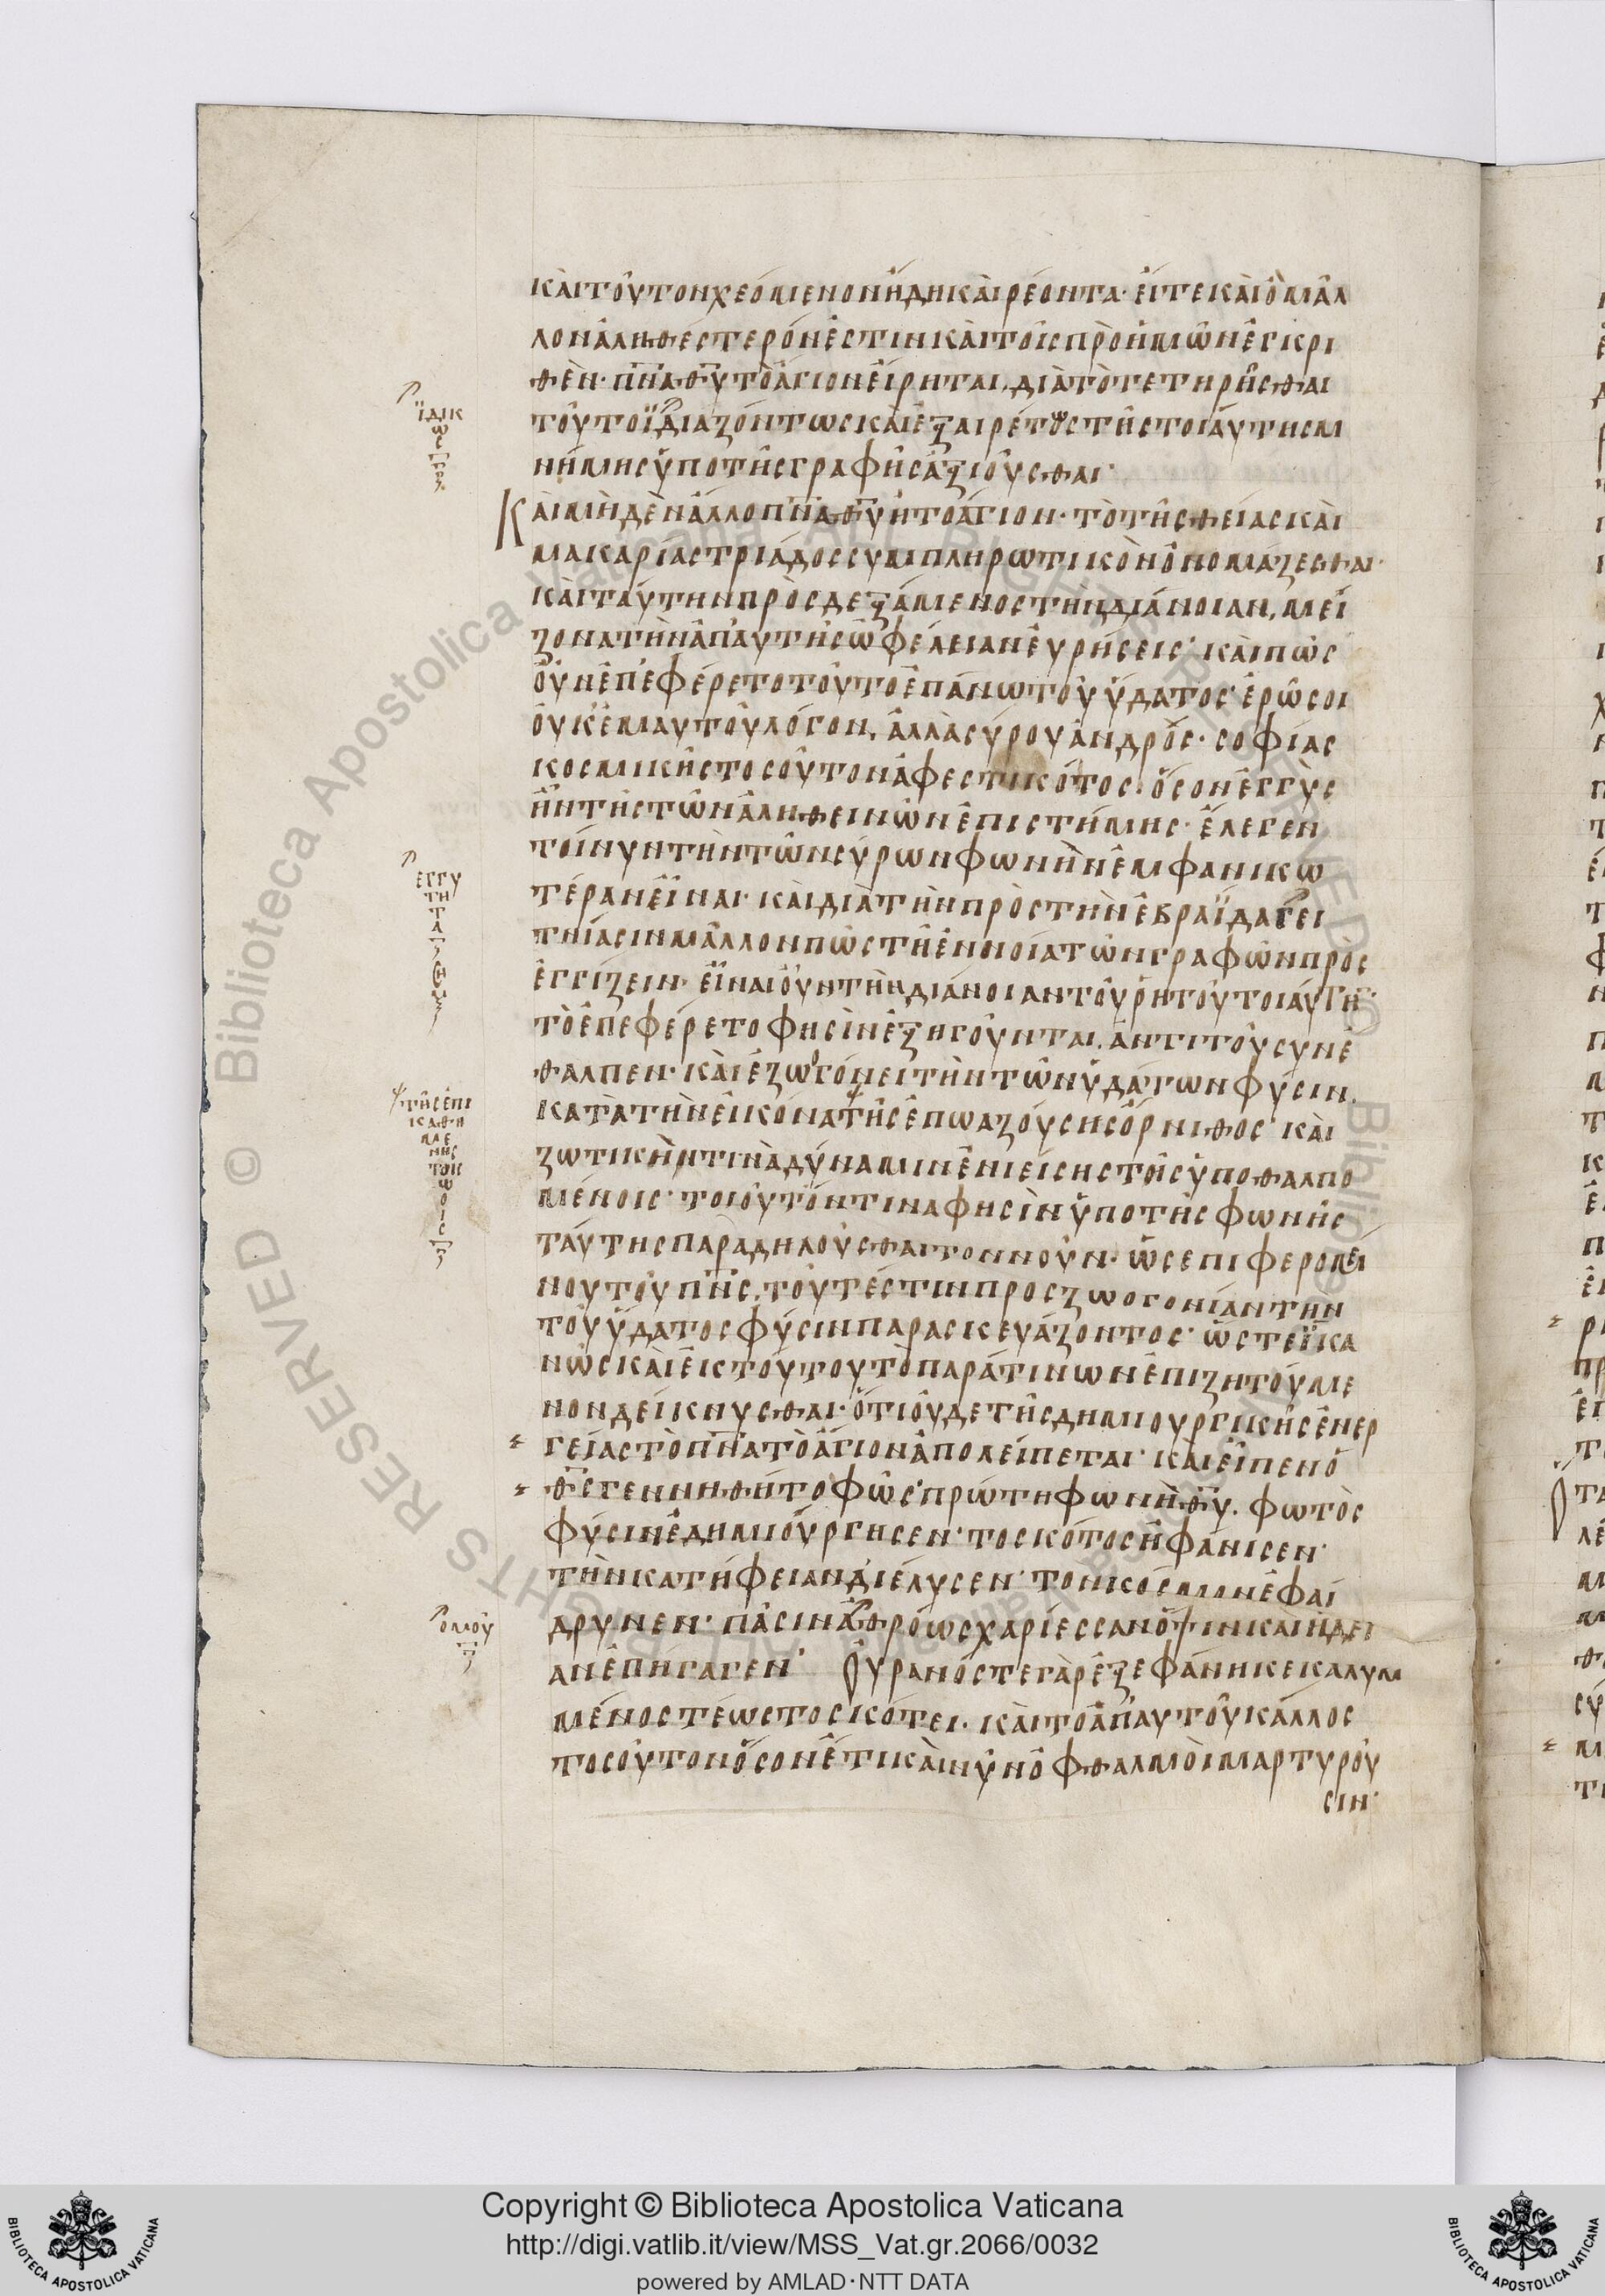 καὶ τοῦτον χεόμενον ἤδη καὶ ῥέοντα· εἴτε καὶ ὃ μᾶλ
λον ἀληθέστερόν ἐστιν καὶ τοῖς πρὸ ἡμῶν ἐγκρι
θὲν· πνα θυ τὸ ἅγιον εἴρηται, διὰ τὸ τετηρῆσθαι
τοῦτο ἰδιαζόντως καὶ ἐξαιρέτως τῆς τοιαύτης μ
νήμης ὑπὸ τῆς γραφῆς ἀξιοῦσθαι·
Καὶ μηδὲν ἄλλο πνα θυ ἢ τὸ ἅγιον· τὸ τῆς θείας καὶ
μακαρίας τριάδος συμπληρωτικὸν ὀνομάζεσθαι·
καὶ ταύτην προσδεξάμενος τὴν διάνοιαν, μεί
ζονα τὴν ἀπ' αὐτῆς ὠφέλειαν εὑρήσεις· καὶ πῶς
οὖν ἐπεφέρετο τοῦτο ἐπάνω τοῦ ὕδατος· ἐρῶ σοι
οὐκ ἐμαυτοῦ λόγον, ἀλλὰ σύρου ἀνδρὸς· σοφίας
κοσμικῆς τοσοῦτον ἀφεστικότος· ὅσον ἐγγὺς
ἦν τῆς τῶν ἀληθεινῶν ἐπιστήμης· ἔλεγεν
τοίνυν τὴν τῶν σύρων φωνὴν ἐμφανικω
τέραν εἶναι· καὶ διὰ τὴν πρὸς τὴν ἑβραΐδα γει
τνίασιν μᾶλλον πῶς τῆ ἐννοία τῶν γραφῶν προσ
εγγίζειν· εἶναι οὖν τὴν διάνοιαν τοῦ ῥητοῦ τοιαύτην·
τὸ ἐπεφέρετο φησὶν ἐξηγοῦνται. ἀντὶ τοῦ συνέ
θαλπεν· καὶ ἐζωογόνει τὴν τῶν ὑδάτων φύσιν.
κατὰ τὴν εἰκόνα τῆς ἐπωαζούσης ὄρνιθος· καὶ
ζωτικήν τινα δύναμιν ἐνιείσης τοῖς ὑποθαλπο
μένοις· τοιοῦτόν τινα φησὶν ὑπὸ τῆς φωνῆς
ταύτης παραδηλοῦσθαι τον νοῦν· ὡς επιφερομέ
νου του πνς, τοῦτέστιν προς ζωογονίαν την
τοῦ ὕδατος φύσιν παρασκευάζοντος· ὥστε ἱκα
νῶς καὶ ἐκ τούτου τὸ παρά τινων ἐπιζητούμε
νον δείκνυσθαι· ὅτι οὐδὲ τῆς δημιουργικῆς ἐνερ
γείας τὸ πνα τὸ ἅγιον ἀπολείπεται· καὶ εἶπεν ὁ
θς γεννηθήτο φῶς· πρώτη φωνὴ θυ. φωτὸς
φύσιν ἐδημιούργησεν· το σκότος ἠφάνισεν·
τὴν κατήφειαν διέλυσεν· τον κόσμον ἐφαί
δρυνεν· πᾶσιν ἀθρόως χαρίεσσαν ὄψιν καὶ ἡδεῖ
αν ἐπήγαγεν· Οὐρανός τε γὰρ ἐξεφάνη κεκαλυμ
μένος τέως το σκότει· καὶ το ἀπ' αυτοῦ κάλλος
τοσοῦτον ὅσον ἔτι καὶ νῦν ὀφθαλμοὶ μαρτυροῦ
σιν·
ἰδικ
ω
ς
εγγυ
τη
τα
τῆς ἐπι
καθη
με
νης
τοις
ω
οις
ὁμοῦ
Copyright © Biblioteca Apostolica Vaticana
http://digi.vatlib.it/view/MSS_Vat.gr.2066/0032
powered by AMLAD·NTT DATA
BIBLIOTECA APOSTOLICA VATICANA
BIBLIOTECA APOSTOLICA VATICANA